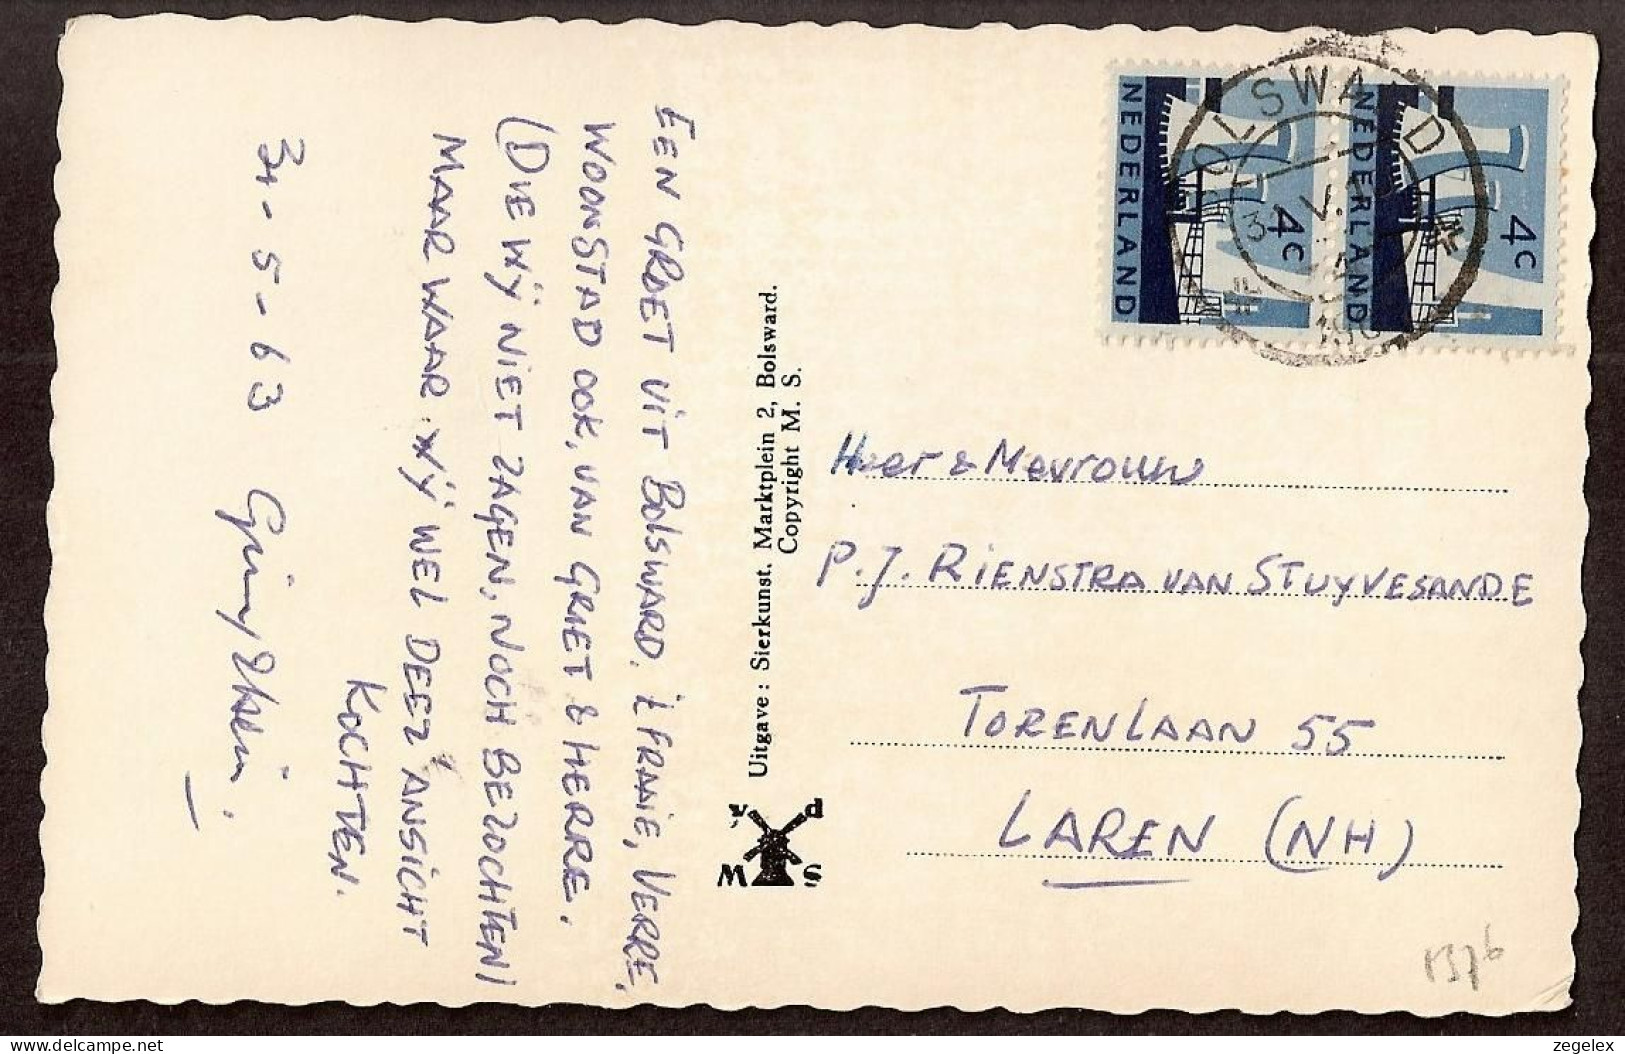 Een groet uit Bolsward. 't fraaie, verre,
woonstad ook, van Griet & Herre.
(Die wij niet zagen, noch bezochten)
maar waar wij wel deez' ansicht
kochten.
31-5-63
Uitgave: Sierkunst, Marktplein 2, Bolsward.
Copyright M. S.
v d
M S
NEDERLAND
4c
NEDERLAND
4c
BOLSWARD
Heer & Mevrouw
P.J. Rienstra van Stuyvesande
Torenlaan 55
Laren (NH)
1376
zegelex
delcampe.net